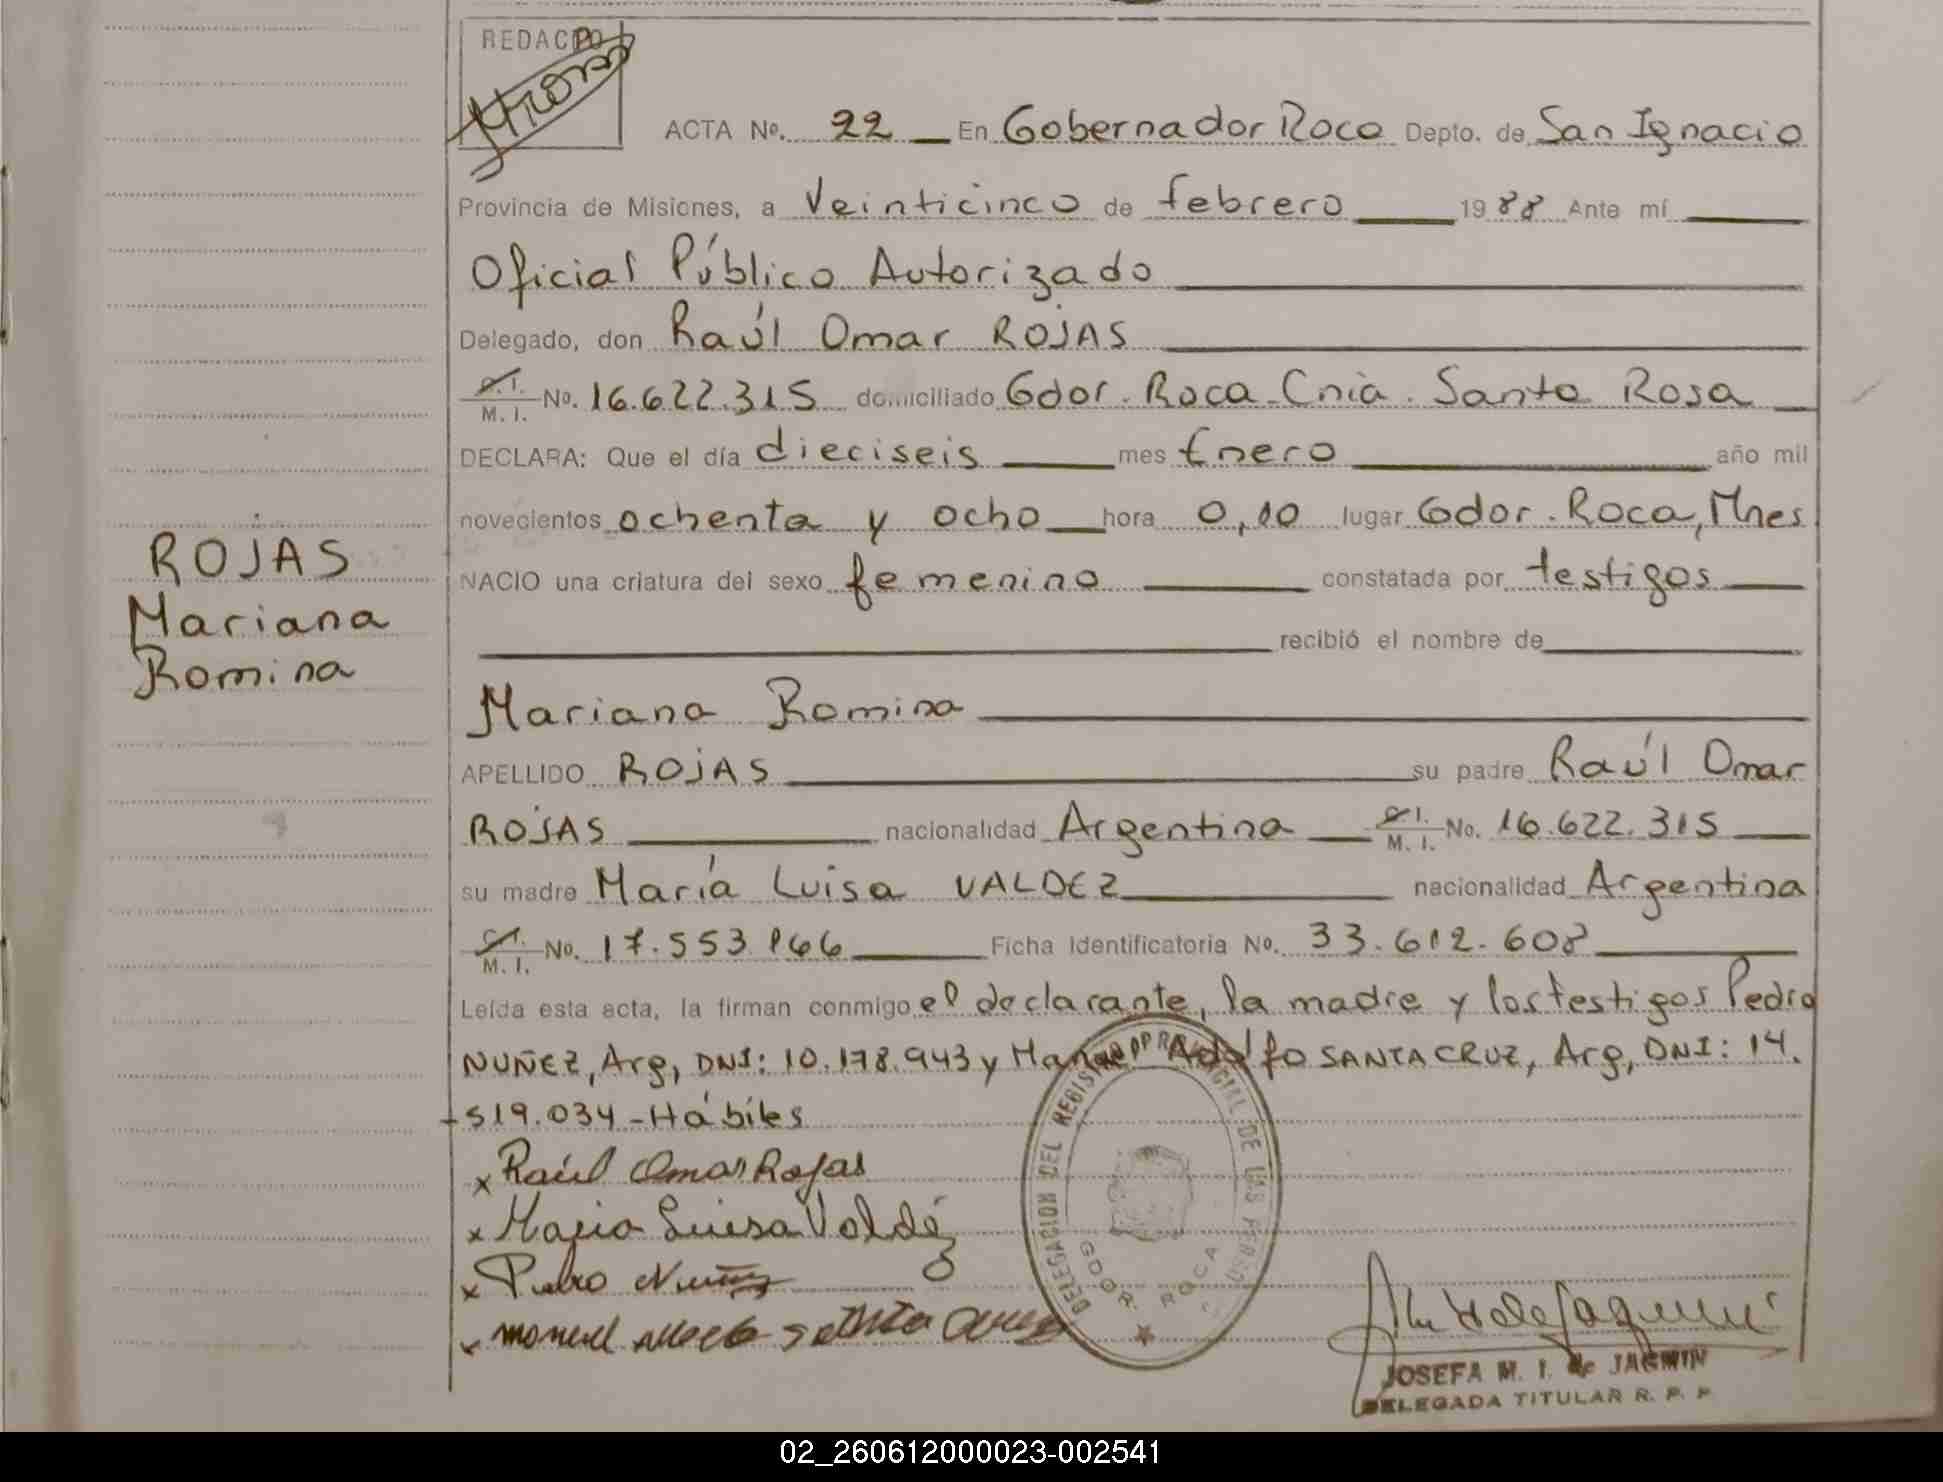 REDACTO
ACTA No. 22 En Gobernador Roca Depto. de San Ignacio
Provincia de Misiones, a Veinticinco de febrero 1988 Ante mí
Oficial Público Autorizado
Delegado, don Raúl Omar ROJAS
C. I. M. I. No. 16.622.315 domiciliado Gdor. Roca Cnia. Santa Rosa
DECLARA: Que el día dieciseis mes Enero año mil
novecientos ochenta y ocho hora 0,10 lugar Gdor. Roca, Mnes
ROJAS
Mariana
Romina
NACIO una criatura del sexo femenino constatada por testigos
recibió el nombre de
Mariana Romina
APELLIDO ROJAS su padre Raúl Omar
ROJAS nacionalidad Argentina C. I. M. I. No. 16.622.315
su madre María Luisa VALDEZ nacionalidad Argentina
C. I. M. I. No. 17.553.166 Ficha Identificatoria No. 33.612.608
Leída esta acta, la firman conmigo el declarante, la madre y los testigos Pedro
NUÑEZ, Arg, DNI: 10.178.943 y Manuel Adolfo SANTA CRUZ, Arg, DNI: 14.
519.034 - Hábiles
x Raúl Omar Rojas
x Maria Luisa Valdéz
x Pedro Nuñez
x Manuel Santa Cruz
DELEGACION DEL REGISTRO PROVINCIAL DE LAS PERSO
GDOR. ROCA
JOSEFA M. I. de JACMIN
DELEGADA TITULAR R. P. P.
02_260612000023-002541